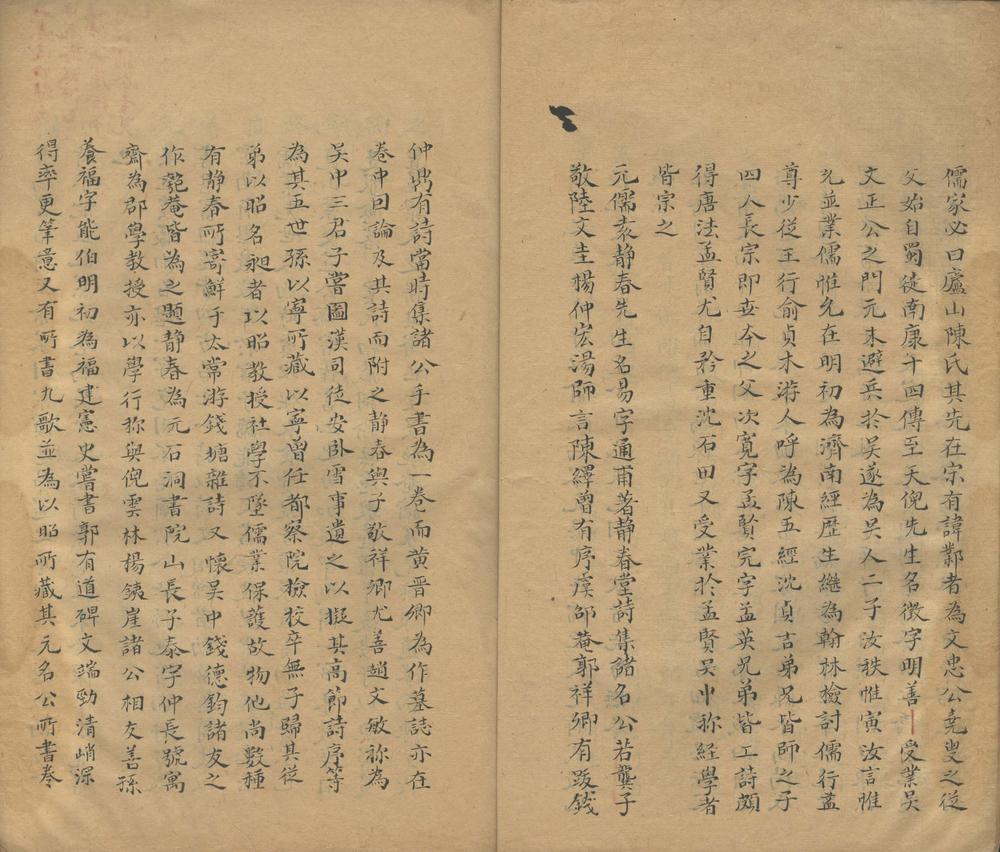 儒家必曰廬山陳氏其先在宋有諱鄴者為文忠公堯叟之從
父始自蜀徙南康十四傳至天倪先生名徵字明善受業吳
文正公之門元末避兵於吳遂為吳人二子汝秩惟寅汝言惟
允並業儒惟允在明初為濟南經歷生繼為翰林檢討儒行盖
尊少從王行俞貞木游人呼為陳五經沈貞吉弟兄皆師之子
四人長宗即世本之父次寛字孟賢完字孟英兄弟皆工詩頗
得唐法孟賢尤自矜重沈石田又受業於孟賢吴中称経學者
皆宗之
元儒袁静春先生名易字通甫著静春堂詩集諸名公若龔子
敬陸文圭楊仲宏湯師言陳繹曾有序虞邵菴郭祥卿有跋錢
仲有詩當時集諸公手書為一卷而黄晋卿為作墓誌亦在
卷中曰論及其詩而附之静春與子敬祥卿尤善趙文敏称為
吴中三君子嘗圖漢司徒安卧雪事遺之以擬其高節詩序等
為其五世孫以寧所藏以寧曾任都察院檢校卒無子歸其從
弟以昭名昶者以昭教授社學不墜儒業保護故物他尚數種
有静春所寄鮮于太常游錢塘雜詩又懷吴中錢德鈞諸友之
作菴皆為之題静春為元石洞書院山長子泰字仲長號寓
齋為郡學教授亦以學行称與倪雲林楊銕崖諸公相友善孫
養福字能伯明初為福建憲史嘗書郭有道碑文端勁清峭深
得率更筆意又有所書九歌並為以昭所藏其元名公所書卷